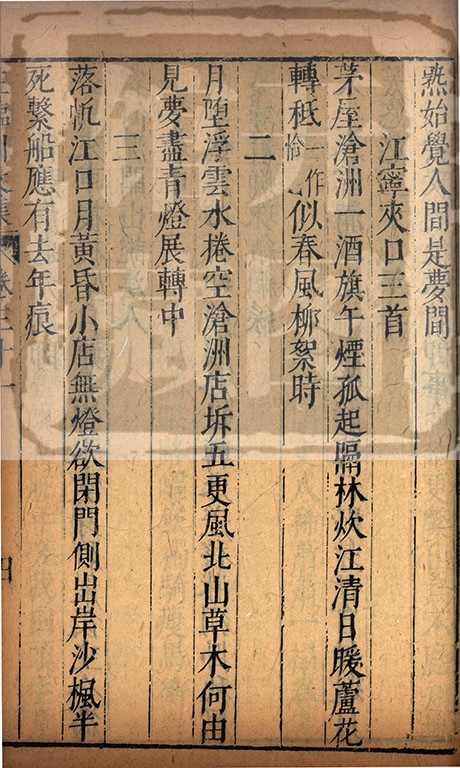 熟始覺人間是夢間
江寧夾口三首
茅屋滄洲一酒旗午煙孤起隔林炊江清日暖蘆花
轉秪一作恰似春風柳絮時
二
月墮浮雲水捲空滄洲店坼五更風北山草木何由
見夢盡青燈展轉中
三
落帆江口月黃昏小店無燈欲閉門側出岸沙楓半
死繫船應有去年痕
卷三十一
四